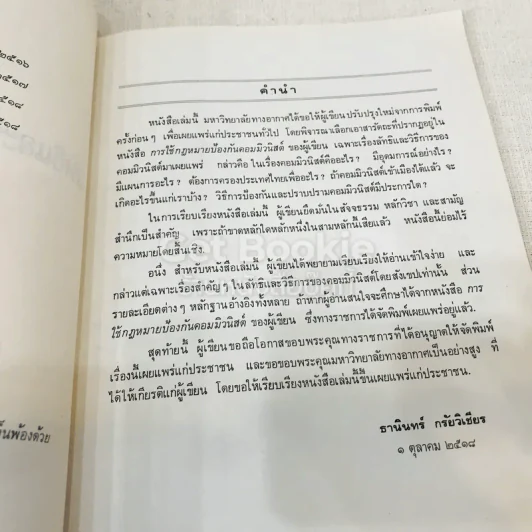 ๒๕๑๖
๒๕๑๗
๒๕๑๘
๒๕๑๘
คำนำ
หนังสือเล่มนี้ มหาวิทยาลัยทางอากาศได้ขอให้ผู้เขียนปรับปรุงใหม่จากการพิมพ์
ครั้งก่อนๆ เพื่อเผยแพร่แก่ประชาชนทั่วไป โดยพิจารณาเลือกเอาสารัตถะที่ปรากฏอยู่ใน
หนังสือ การใช้กฎหมายป้องกันคอมมิวนิสต์ ของผู้เขียน เฉพาะเรื่องลัทธิและวิธีการของ
คอมมิวนิสต์มาเผยแพร่ กล่าวคือ ในเรื่องคอมมิวนิสต์คืออะไร? มีอุดมการณ์อย่างไร?
มีแผนการอะไร? ต้องการครองประเทศไทยเพื่ออะไร? ถ้าคอมมิวนิสต์เข้าเมืองได้แล้ว จะ
เกิดอะไรขึ้นแก่เราบ้าง? วิธีการป้องกันและปราบปรามคอมมิวนิสต์มีประการใด?
ในการเรียบเรียงหนังสือเล่มนี้ ผู้เขียนยึดมั่นในสัจธรรม หลักวิชา และสามัญ
สำนึกเป็นสำคัญ เพราะถ้าขาดหลักใดหลักหนึ่งในสามหลักนี้เสียแล้ว หนังสือนี้ย่อมไร้
ความหมายโดยสิ้นเชิง.
อนึ่ง สำหรับหนังสือเล่มนี้ ผู้เขียนได้พยายามเรียบเรียงให้อ่านเข้าใจง่าย และ
กล่าวแต่เฉพาะเรื่องสำคัญๆ ในลัทธิและวิธีการของคอมมิวนิสต์โดยสังเขปเท่านั้น ส่วน
รายละเอียดต่างๆ หลักฐานอ้างอิงทั้งหลาย ถ้าหากผู้อ่านสนใจจะศึกษาได้จากหนังสือ การ
ใช้กฎหมายป้องกันคอมมิวนิสต์ ของผู้เขียน ซึ่งทางราชการได้จัดพิมพ์เผยแพร่อยู่แล้ว.
สุดท้ายนี้ ผู้เขียนขอถือโอกาสขอบพระคุณทางราชการที่ได้อนุญาตให้จัดพิมพ์
เรื่องนี้เผยแพร่แก่ประชาชน และขอขอบพระคุณมหาวิทยาลัยทางอากาศเป็นอย่างสูง ที่
ได้ให้เกียรติแก่ผู้เขียน โดยขอให้เรียบเรียงหนังสือเล่มนี้ขึ้นเผยแพร่แก่ประชาชน.
ธานินทร์ กรัยวิเชียร
๑ ตุลาคม ๒๕๑๘
พ้องด้วย
Get Bookie